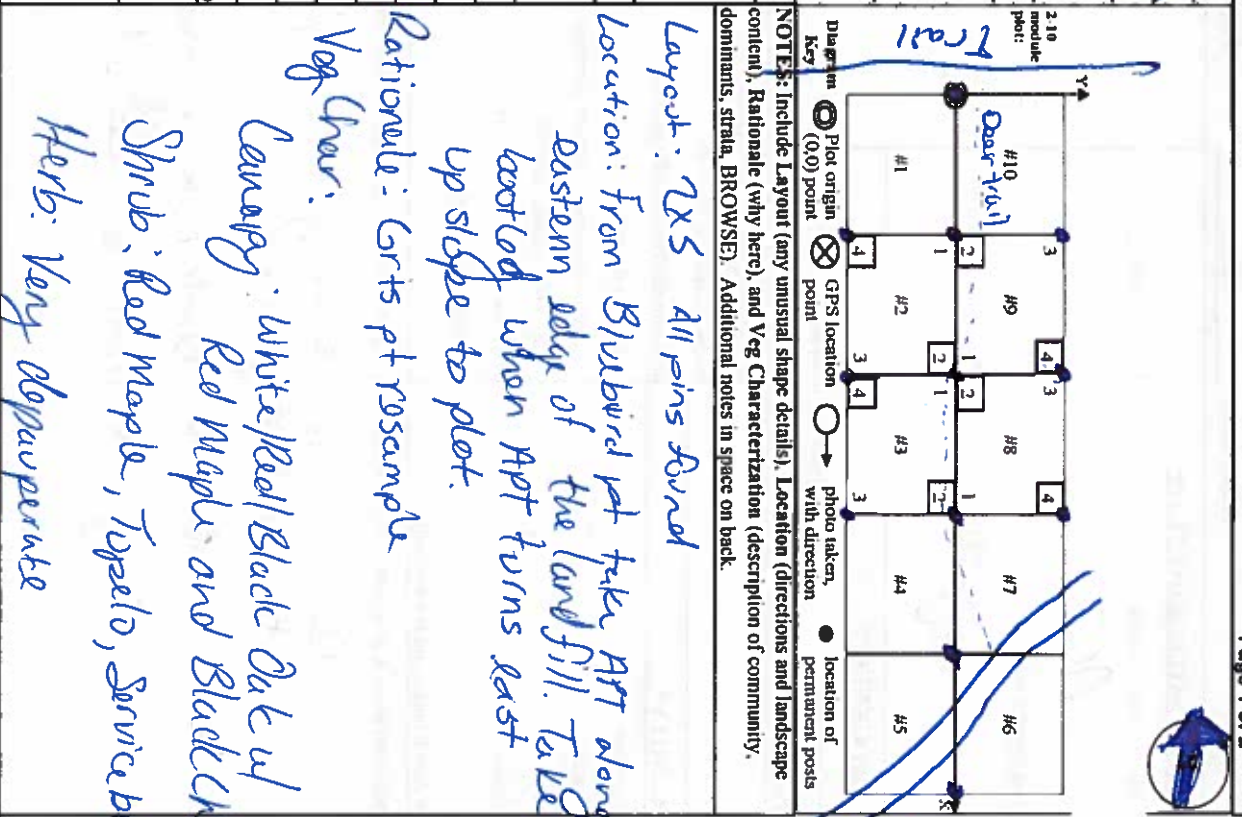 Page 1 of 2
2-10
module
plot:
trail
Y
X
#10
#9
#8
#7
#6
Deer trail
3
2
1
4
3
2
1
4
#1
#2
#3
#4
#5
4
1
2
3
4
1
2
3
Diagram
Key
Plot origin
(0,0) point
GPS location
point
photo taken,
with direction
location of
permanent posts
NOTES: Include Layout (any unusual shape details), Location (directions and landscape
content), Rationale (why here), and Veg Characterization (description of community,
dominants, strata, BROWSE). Additional notes in space on back.
Layout: 2x5 All pins found
Location: From Bluebird pt take APT along
eastern edge of the landfill. Take
bootleg when APT turns east
up slope to plot.
Rationale: Grts pt resample
Veg Char:
Canopy: White/Red/Black Oak w/
Red Maple and Black Ch
Shrub: Red Maple, Tupelo, Serviceb
Herb: Very depauperate